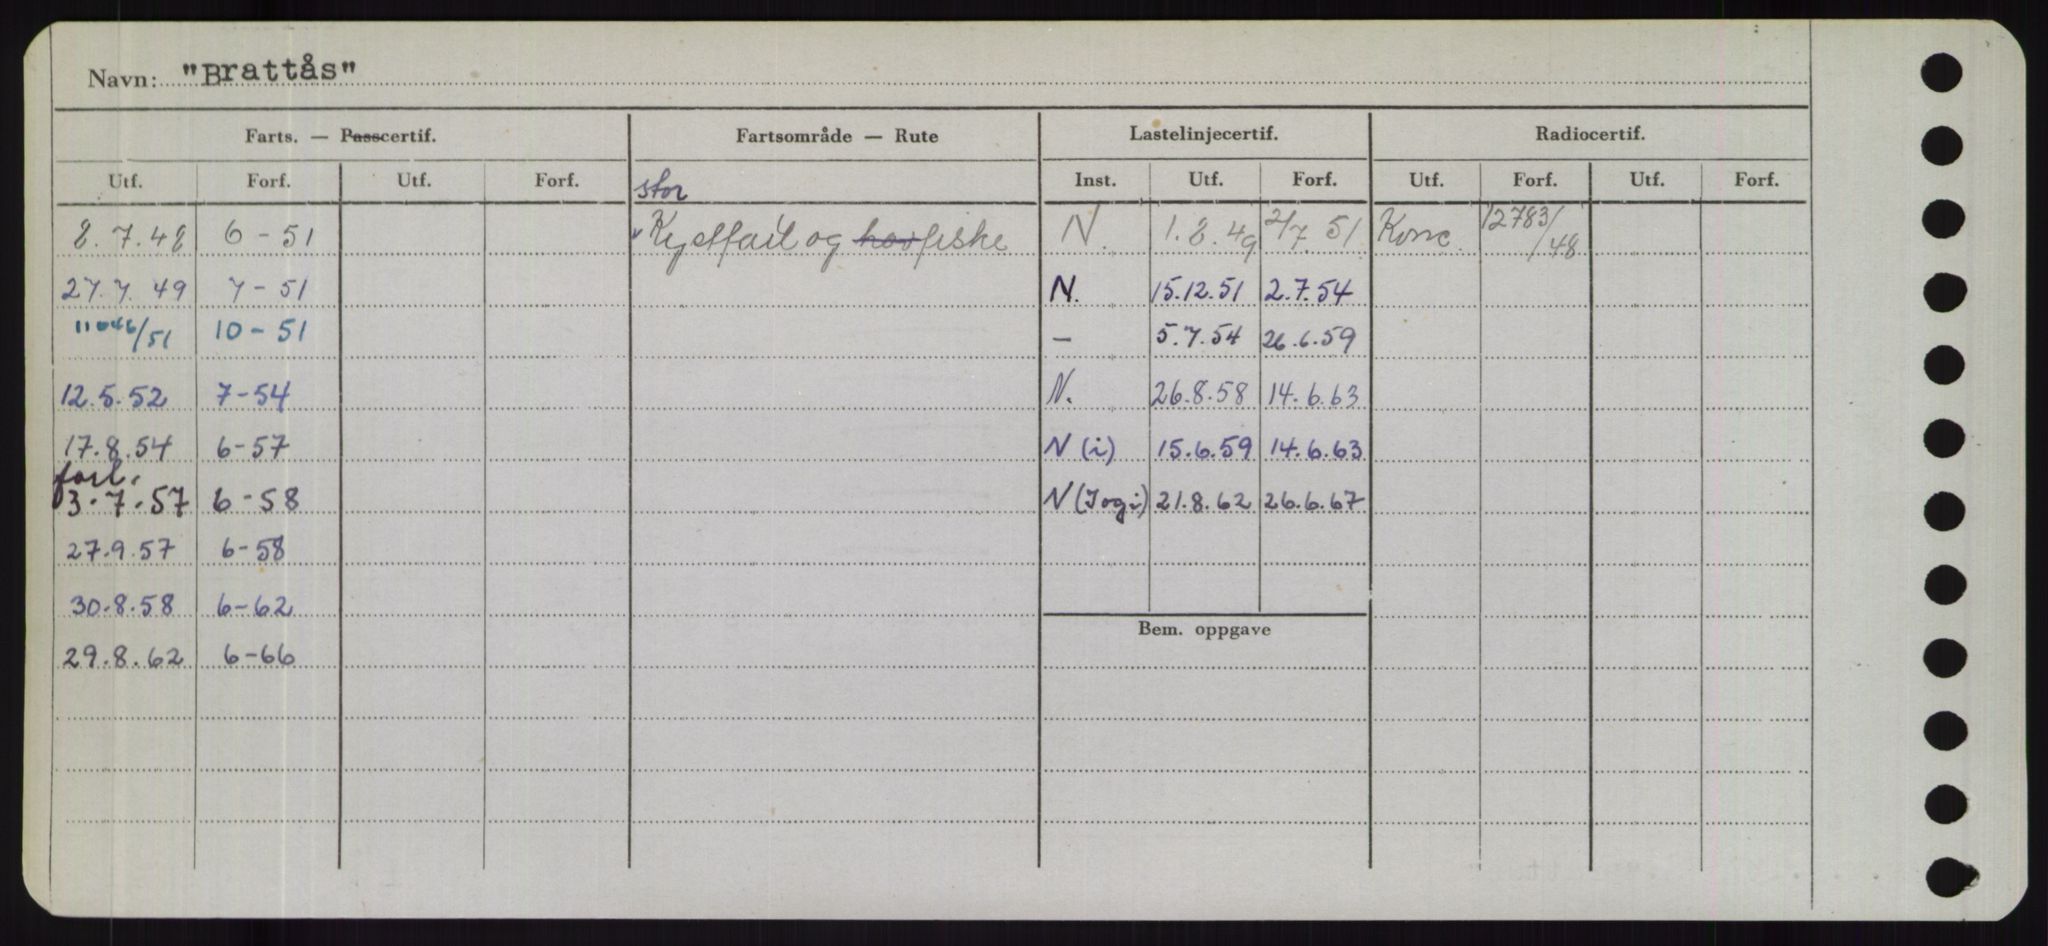 Navn: "Brattås"
Farts. — Passcertif. Fartsområde — Rute Lastelinjecertif. Radiocertif.
Utf. Forf. Utf. Forf. stor Inst. Utf. Forf. Utf. Forf. Utf. Forf.
8.7.48 6-51 Kystfart og havfiske N. 1.8.49 2/7.51 Konc. 12783/48
27.7.49 7-51 N. 15.12.51 2.7.54
11046/51 10-51 — 5.7.54 26.6.59
12.5.52 7-54 N. 26.8.58 14.6.63
17.8.54 6-57 N (i) 15.6.59 14.6.63
forl.
3.7.57 6-58 N (I og i) 21.8.62 26.6.67
27.9.57 6-58
30.8.58 6-62
Bem. oppgave
29.8.62 6-66